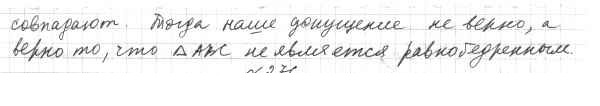 совпадают. Тогда наше допущение не верно, а
верно то, что △ABC не является равнобедренным.